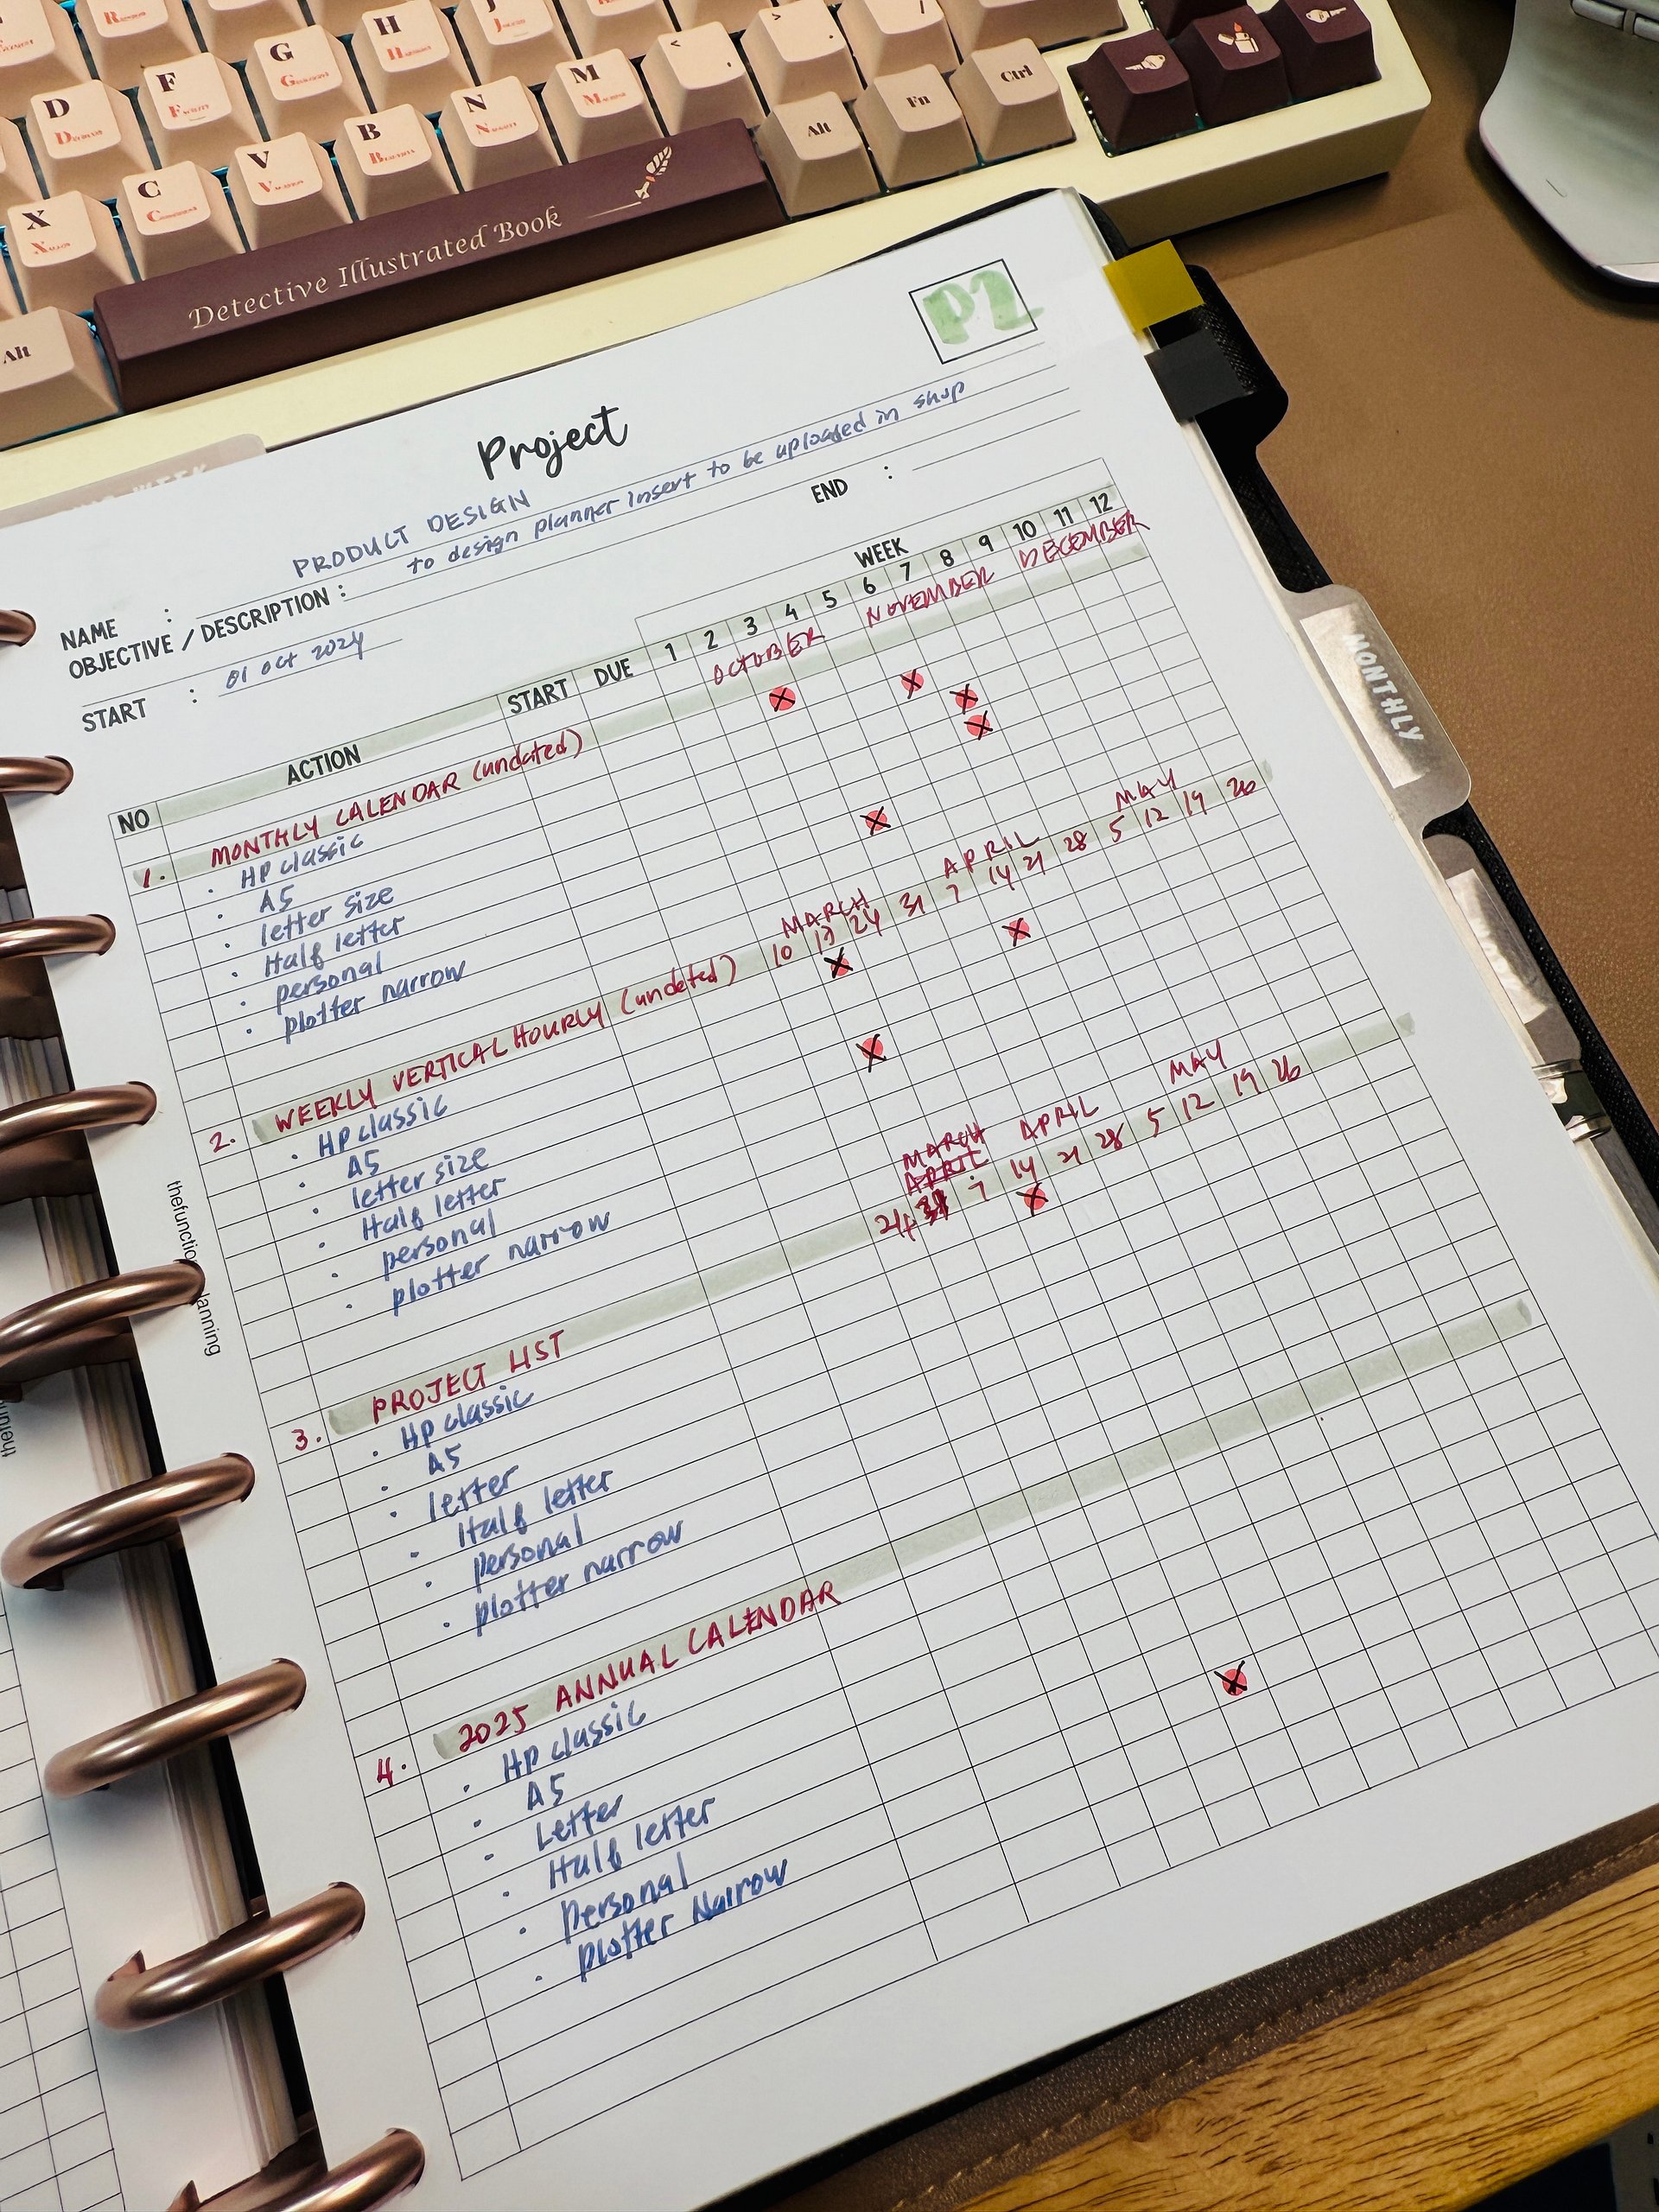 R
D F G H J
D F G H
X C V B N M < , > . /
X C V B N M
Alt Fn Ctrl
Alt
Detective Illustrated Book
P2
Project
NAME : PRODUCT DESIGN
OBJECTIVE / DESCRIPTION : to design planner insert to be uploaded in shop
START : 01 Oct 2024 END :
WEEK
NO ACTION START DUE 1 2 3 4 5 6 7 8 9 10 11 12
OCTOBER NOVEMBER DECEMBER
1. MONTHLY CALENDAR (undated)
· HP classic
· A5
· letter size
· Half letter
· personal
· plotter narrow
MARCH APRIL MAY
2. WEEKLY VERTICAL HOURLY (undated) 10 17 24 31 7 14 21 28 5 12 19 26
· HP classic
· A5
· letter size
· Half letter
· personal
· plotter narrow
MARCH APRIL MAY
APRIL
3. PROJECT LIST 24 31 7 14 21 28 5 12 19 26
· HP classic
· A5
· letter
· Half letter
personal
· plotter narrow
4. 2025 ANNUAL CALENDAR
· HP classic
· A5
· Letter
· Half letter
· Personal
· plotter Narrow
MONTHLY